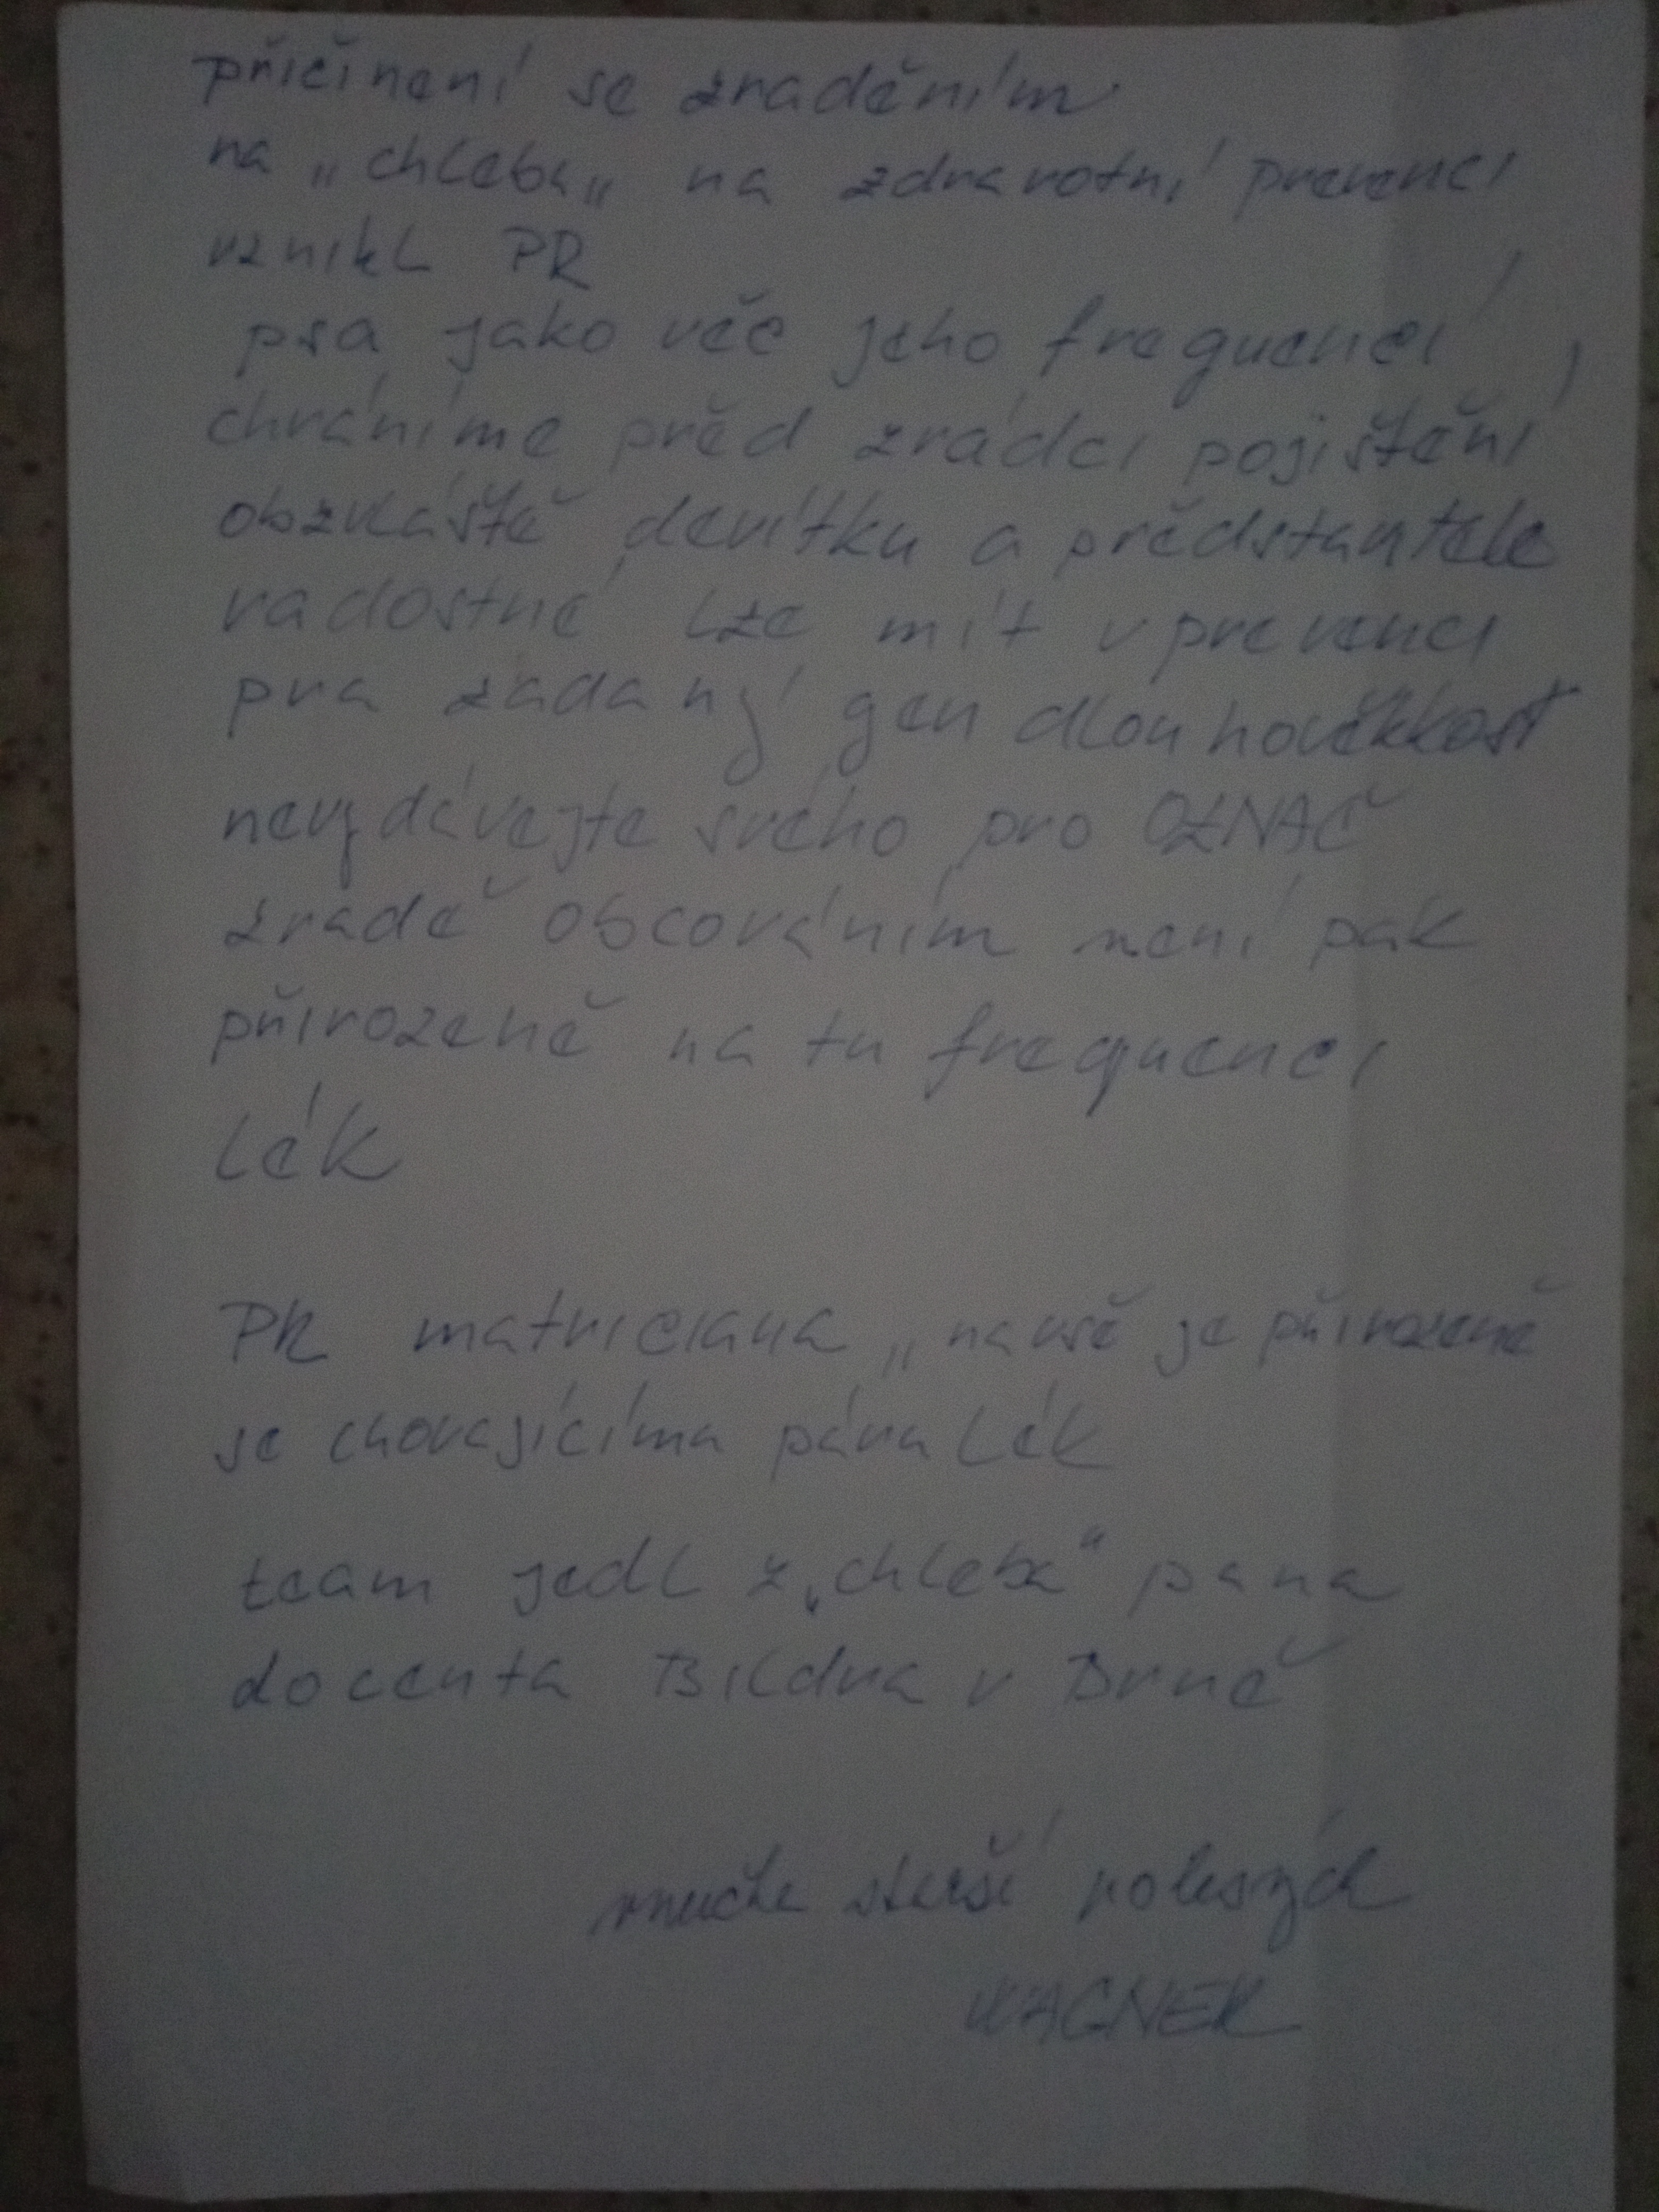 přičinění se zraděním
na „chleba„ na zdravotní prevenci
vznikl PR
psa jako věc jeho frequencí,
chráníme před zrádci pojištění
obzvláště devítku a představitele
radostné lze mít v prevenci
pra žádaný gen dlouhověkkost
nevydávejte svého pro OZNAČ
zradě obcováním není pak
přirozeně na tu frequenci
lék
PR matriciana „na vše je přirozeně
se chovajícíma pána lék
team jedl z „chleba" pana
docenta Bildra v Brně
vnučka starší
WAGNER